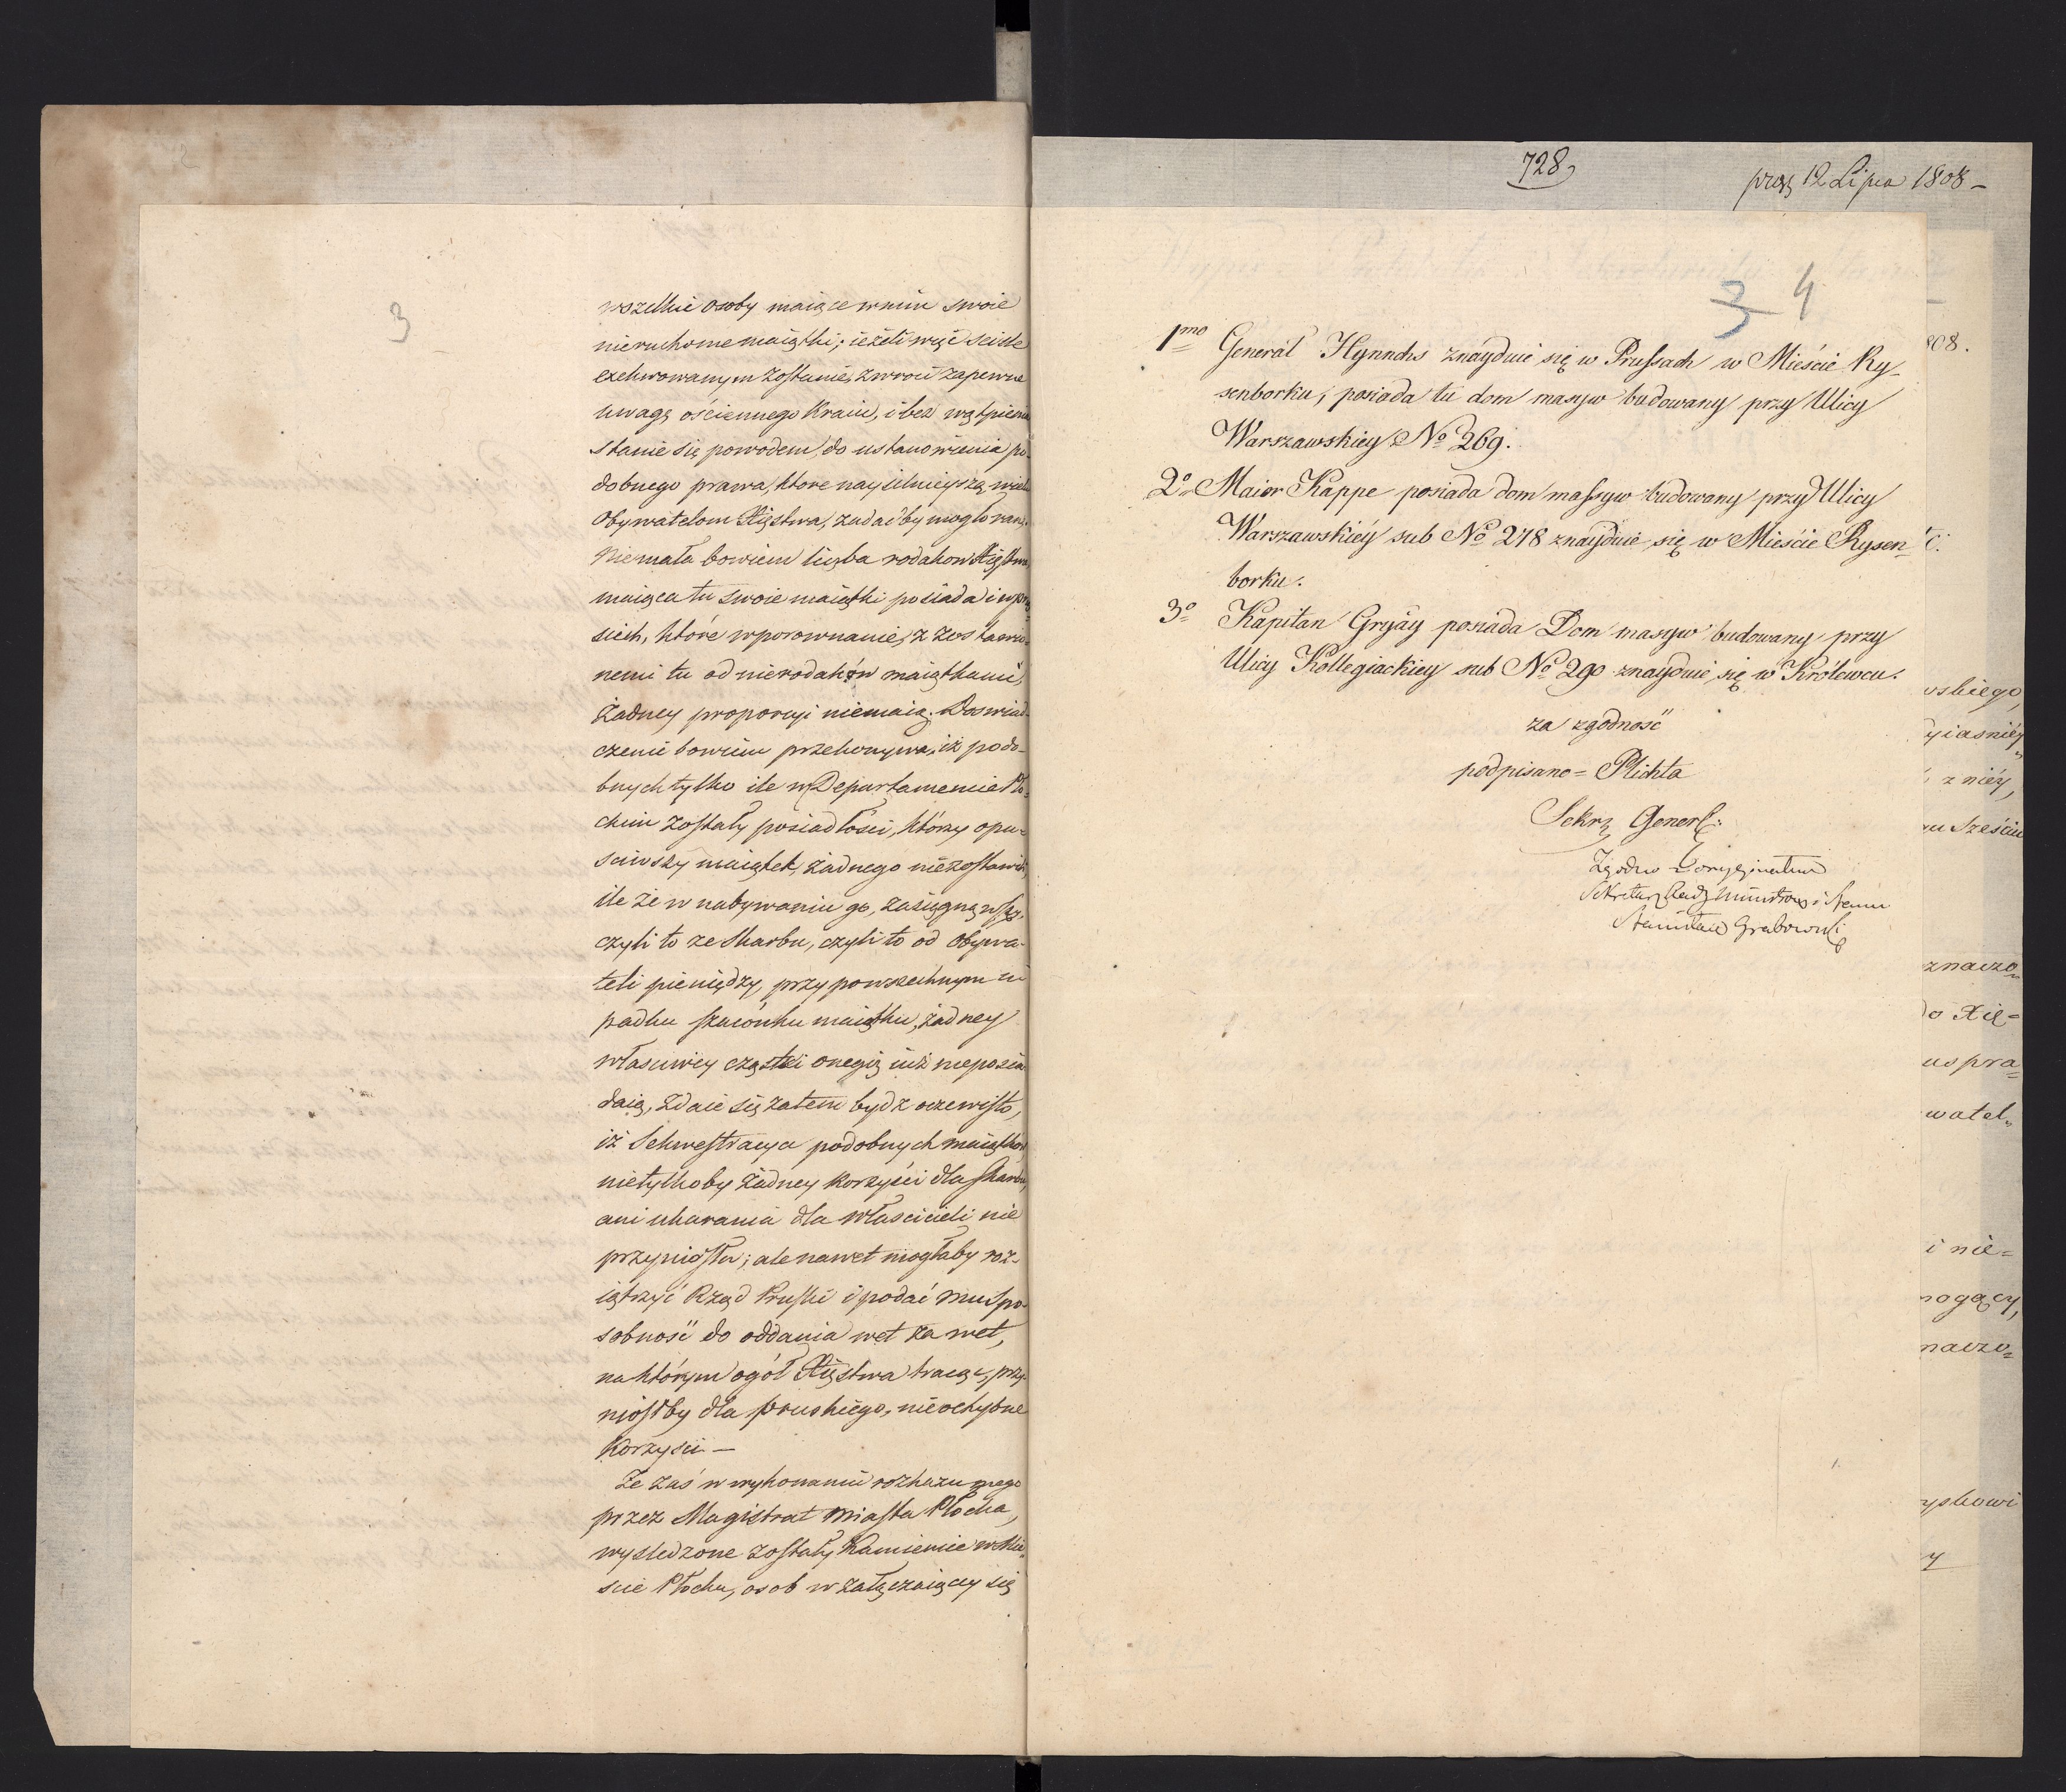 3
wszelkie osoby maiące w nim swoie
nieruchome maiątki; ieżeli więc scisle
exekwowanym zostanie, zwroci zapewne
uwagę ościennego Kraiu, i bez wątpienia
stanie się powodem, do ustanowienia po-
dobnego prawa, ktore naysilnieyszą wielu
Obywatelom Xięstwa, zadać by mogło ranę.
Niemała bowiem liczba rodakow Xięstwa
maiąca tu swoie maiątki posiada i w Pru
siech, które w porownanie, z zostawio-
nemi tu od nierodaków maiątkami,
żadney proporcyi niemaią. Doswiad-
czenie bowiem przekonywa, iż podo-
bnych tylko ile w Departamencie Pło-
ckim zostały posiadłości, którzy opu-
sciwszy maiątek, żadnego niezostawili,
ile że w nabywaniu go, zasiągnąwszy,
czyli to ze Skarbu, czyli to od Obywa-
teli pieniędzy, przy powszechnym u
padku szacunku maiątku, żadney
własciwey cząstki onegią iuż nieposia
daią, zdaie się zatem bydz oczewisto,
iż Sekwestracya podobnych maiątków
nietylkoby żadney korzyści dla Skarbu,
ani ukarania dla właścicieli nie
przyniosła; ale nawet mogłaby roz-
iątrzyć Rząd Pruski i podać mu spo-
sobność do oddania wet za wet,
na którym ogół Xięstwa tracąc, przy-
niosłby dla pruskiego, nieochybne
Korzyści —
Ze zaś w wykonaniu rozkazu mego
przez Magistrat Miasta Płocka,
wysledzone zostały Kamienice w Mie-
scie Płocku, osob w załączaiącey się
728
prez 12 Lipca 1808 —
3 4
1mo Generał Hynnchs znayduie się w Prussach w Mieście Ry-
senborku, posiada tu dom masyw budowany przy Ulicy
Warszawskiey No 269.
2o Maior Kappe posiada dom massyw budowany przy Ulicy
Warszawskiéy sub No 278 znayduie się w Mieście Rysen-
borku.
3o Kapitan Gryży posiada Dom masyw budowany przy
Ulicy Kollegiackiey sub No 290 znayduie się w Królewcu.
za zgodność
podpisano = Plichta
Sekrz Generl:
Zgodno z oryginałem
Sekretarz Rady Ministrow i Stanu
Stanisław Grabowski
808.
wskiego,
yiasniéy
z niéy,
m Sześciu
znaczo
do Xię=
us pra=
watel
i nie=
mogący,
naczo=
yskowi
y